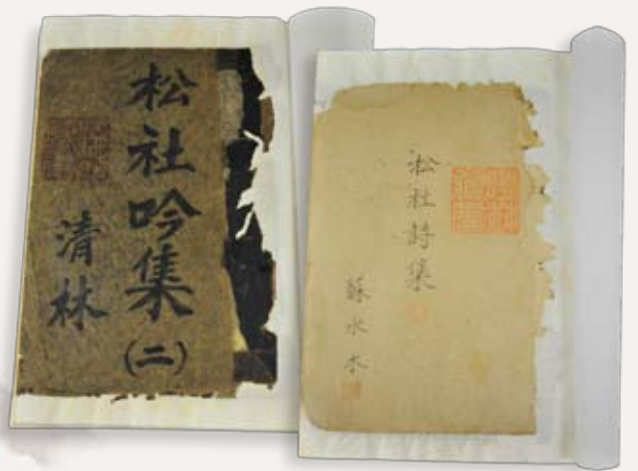 松社吟集(二)
清林
松社詩集
蘇水木